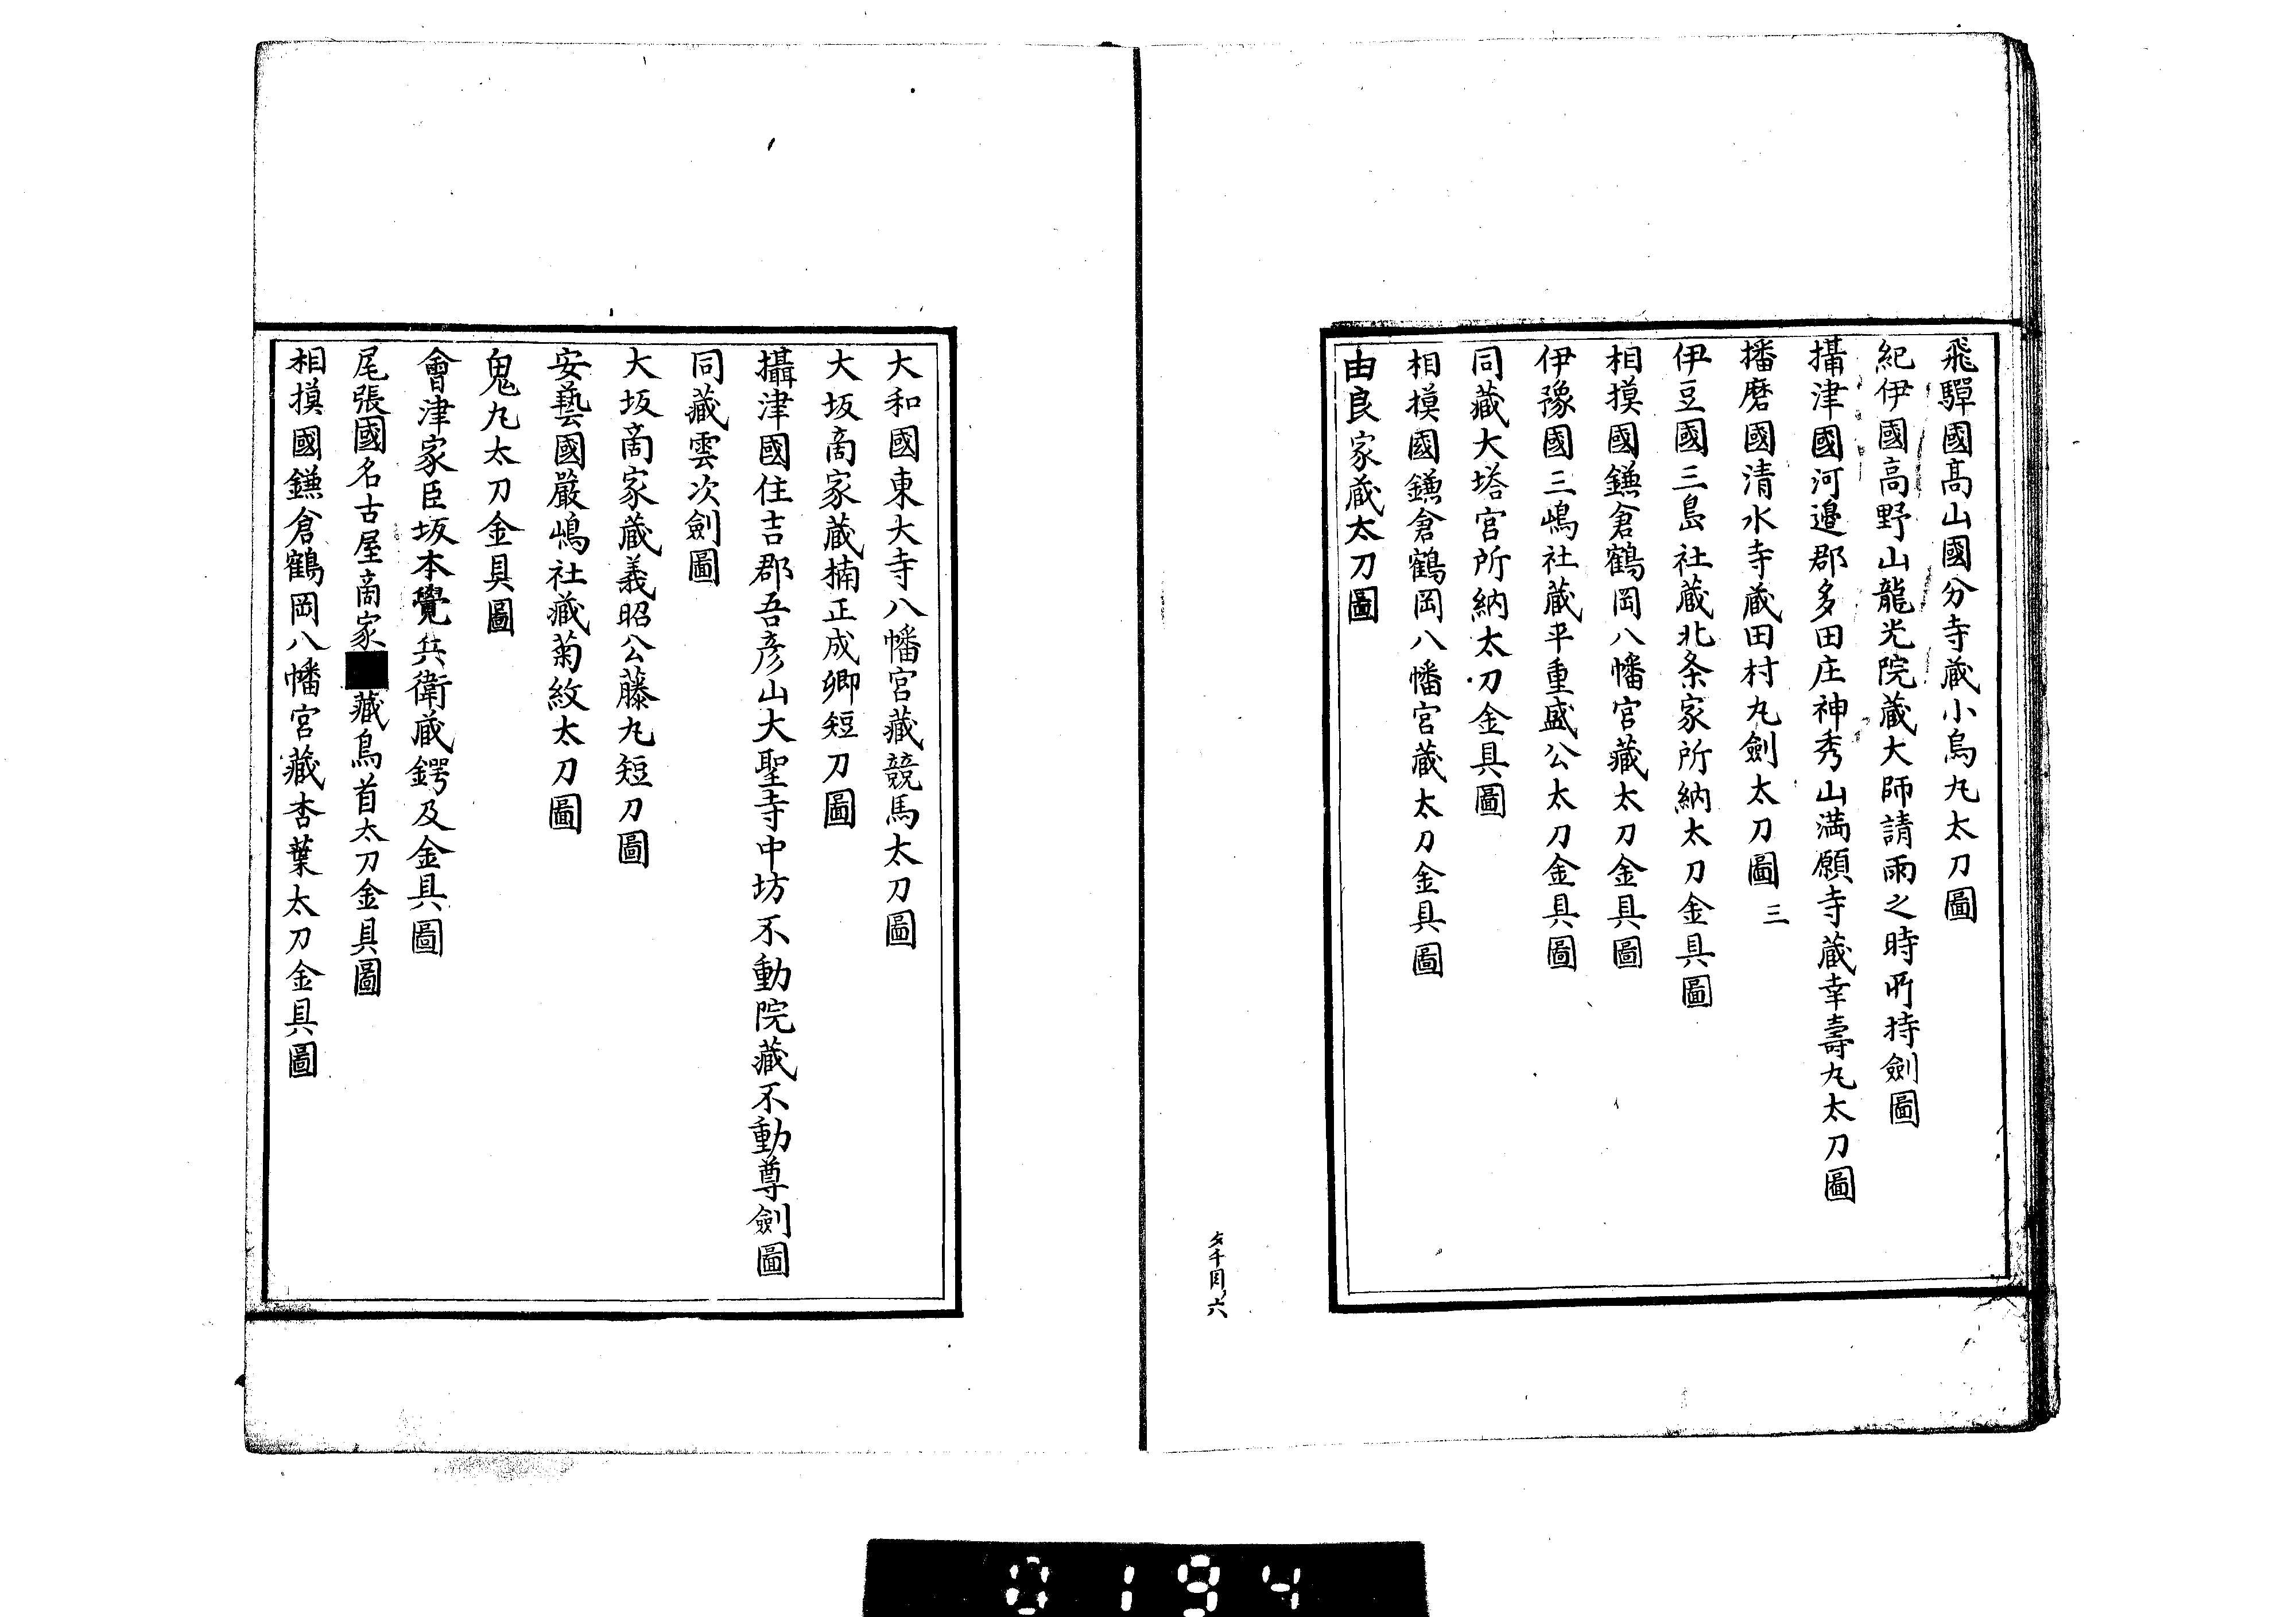 飛驒國髙山國分寺蔵小烏丸太刀圖
紀伊國高野山龍光院蔵大師請雨之時所持劍圖
攝津國河邉郡多田庄神秀山満願寺蔵幸壽丸太刀圖
播磨國清水寺蔵田村丸劍太刀圖 三
伊豆國三島社蔵北条家所納太刀金具圖
相摸國鎌倉鶴岡八幡宮藏太刀金具圖
伊豫國三嶋社蔵平重盛公太刀金具圖
同藏大塔宮所納太刀金具圖
相摸國鎌倉鶴岡八幡宮蔵太刀金具圖
由良家蔵太刀圖
六
大和國東大寺八幡宮藏競馬太刀圖
大坂商家蔵楠正成卿短刀圖
攝津國住吉郡吾彦山大聖寺中坊不動院藏不動尊劍圖
同藏雲次劍圖
大坂商家蔵義昭公藤丸短刀圖
安藝國嚴嶋社藏菊紋太刀圖
鬼丸太刀金具圖
會津家臣坂本覺兵衛蔵鍔及金具圖
尾張國名古屋商家■藏鳥首太刀金具圖
相摸國鎌倉鶴岡八幡宮藏杏葉太刀金具圖
0194